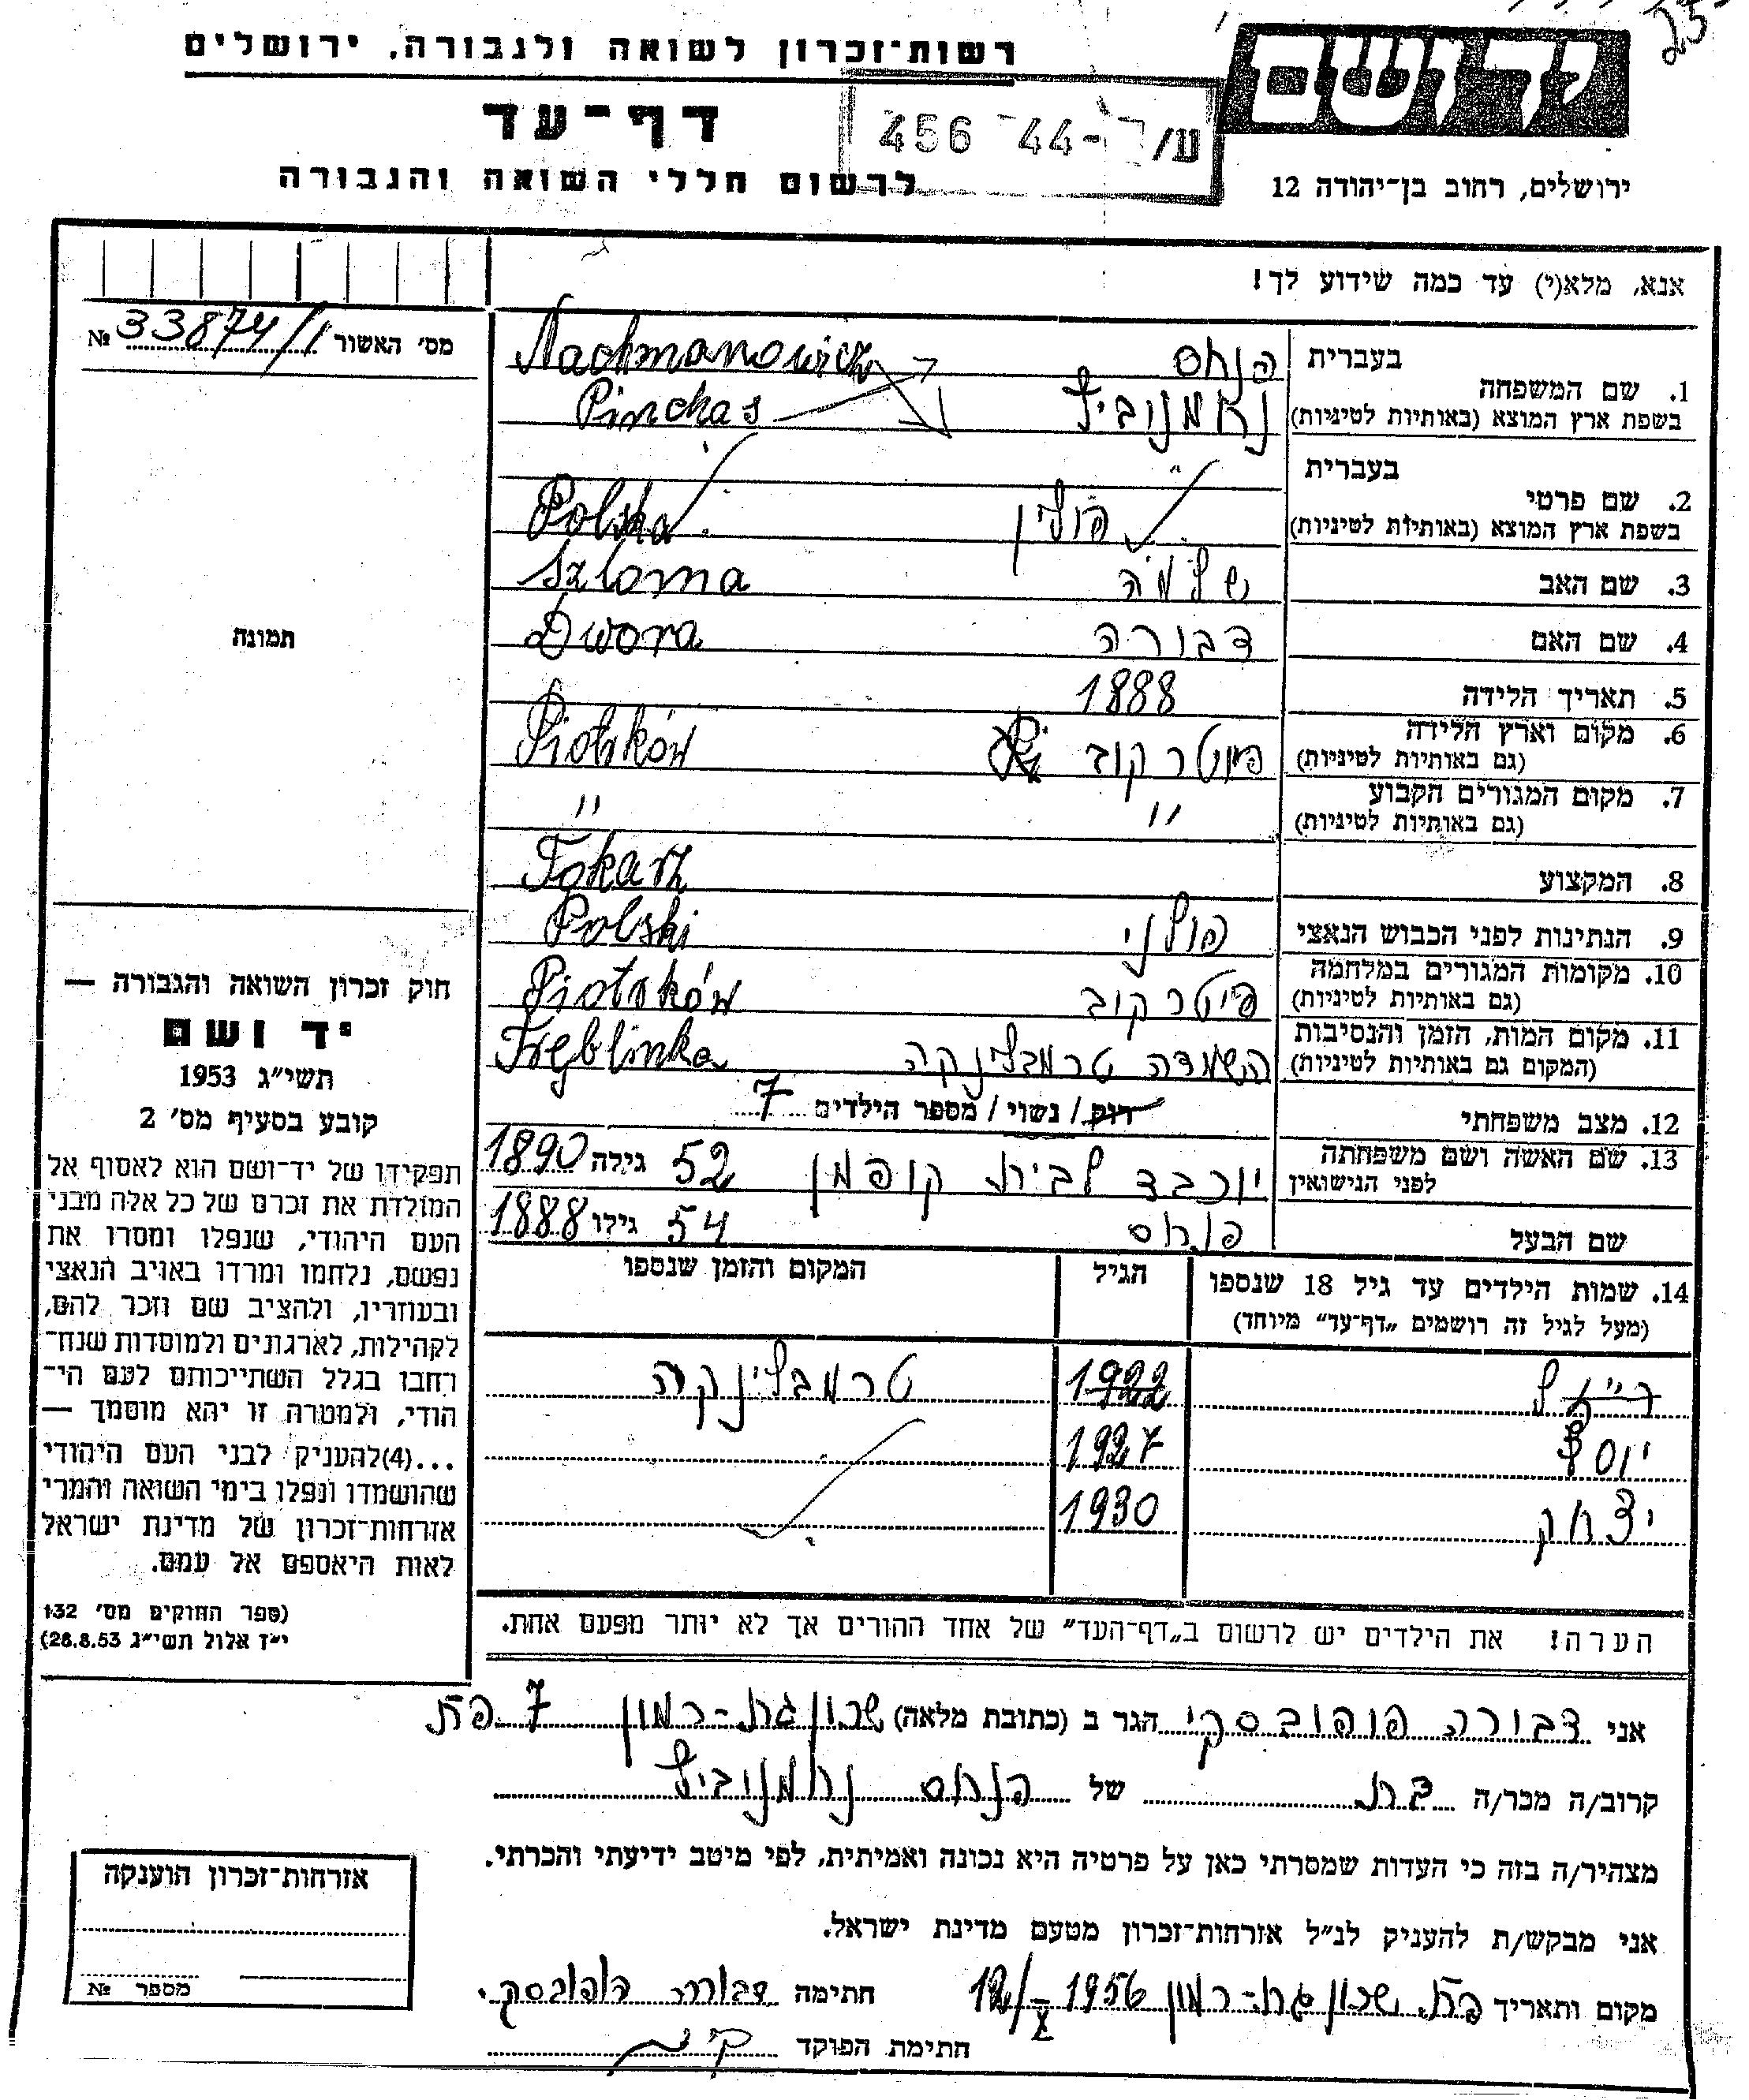 25
רשות־זכרון לשואה ולגבורה, ירושלים
ידושם
דף־עד
ע/ 44- 456
לרשום חללי השואה והגבורה
ירושלים, רחוב בן־יהודה 12
אנא, מלא(י) עד כמה שידוע לך!
מס׳ האשור 33874/1 №
בעברית
1. שם המשפחה
בשפת ארץ המוצא (באותיות לטיניות)
פנחס Nachmanowicz
נחמנוביץ Pinchas
בעברית
2. שם פרטי
בשפת ארץ המוצא (באותיות לטיניות)
פולין Polska
3. שם האב שלמה Szloma
4. שם האם דבורה Dwora
5. תאריך הלידה 1888
6. מקום וארץ הלידה
(גם באותיות לטיניות)
פיוטרקוב Piotrków
7. מקום המגורים הקבוע
(גם באותיות לטיניות)
" "
8. המקצוע Tokarz
9. הנתינות לפני הכבוש הנאצי פולני Polski
10. מקומות המגורים במלחמה
(גם באותיות לטיניות)
פיטרקוב Piotrków
11. מקום המות, הזמן והנסיבות
(המקום גם באותיות לטיניות)
השמדה טרמבלינקה Tręblinka
12. מצב משפחתי רוק / נשוי / מספר הילדים 7
13. שם האשה ושם משפחתה
לפני הנישואין
יוכבד לבית קופמן 52 גילה 1890
שם הבעל פנחס 54 גילו 1888
14. שמות הילדים עד גיל 18 שנספו
(מעל לגיל זה רושמים „דף־עד" מיוחד)
הגיל
המקום והזמן שנספו
1922 טרמבלינקה
יוסף 1927
יצחק 1930
הערה! את הילדים יש לרשום ב„דף־העד" של אחד ההורים אך לא יותר מפעם אחת.
תמונה
חוק זכרון השואה והגבורה —
יד ושם
תשי״ג 1953
קובע בסעיף מס׳ 2
תפקידו של יד־ושם הוא לאסוף אל
המולדת את זכרם של כל אלה מבני
העם היהודי, שנפלו ומסרו את
נפשם, נלחמו ומרדו באויב הנאצי
ובעוזריו, ולהציב שם וזכר להם,
לקהילות, לארגונים ולמוסדות שנח־
רחבו בגלל השתייכותם לעם הי־
הודי, ולמטרה זו יהא מוסמך —
...(4)להעניק לבני העם היהודי
שהושמדו ונפלו בימי השואה והמרי
אזרחות־זכרון של מדינת ישראל
לאות היאספם אל עמם.
(ספר החוקים מס׳ 132
י״ז אלול תשי״ג 28.8.53)
אני דבורה פוהובסקי הגר ב (כתובת מלאה) שכון גת-רמון 7 פת
קרוב/ה מכר/ה בת של פנחס נחמנוביץ
מצהיר/ה בזה כי העדות שמסרתי כאן על פרטיה היא נכונה ואמיתית, לפי מיטב ידיעתי והכרתי.
אני מבקש/ת להעניק לנ״ל אזרחות־זכרון מטעם מדינת ישראל.
מקום ותאריך פת. שכון גת-רמון 12/X 1956 חתימה דבורה פוהובסקי
חתימת הפוקד
אזרחות־זכרון הוענקה
מספר №